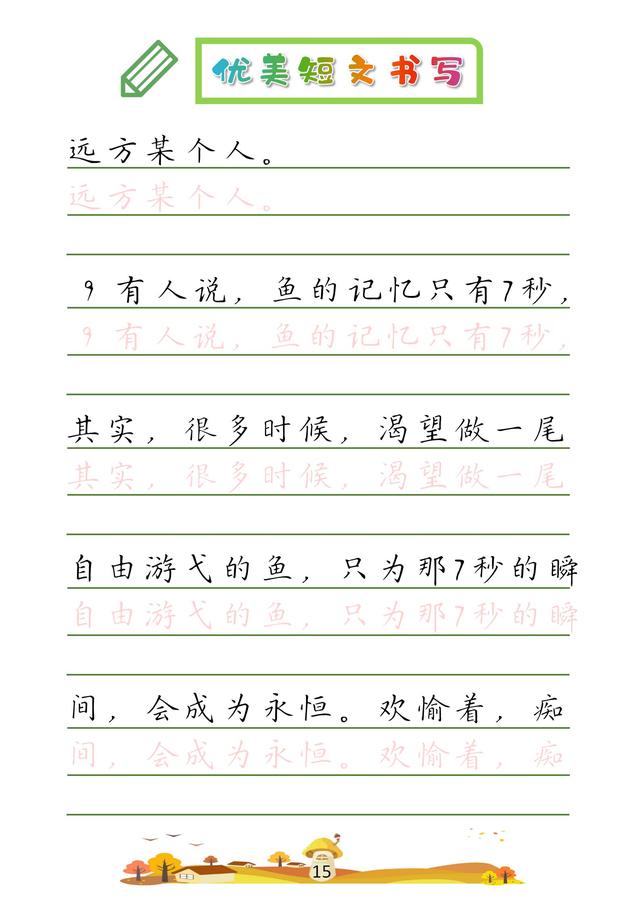 优美短文书写
远方某个人。
远方某个人。
9 有人说，鱼的记忆只有7秒，
9 有人说，鱼的记忆只有7秒，
其实，很多时候，渴望做一尾
其实，很多时候，渴望做一尾
自由游弋的鱼，只为那7秒的瞬
自由游弋的鱼，只为那7秒的瞬
间，会成为永恒。欢愉着，痴
间，会成为永恒。欢愉着，痴
15